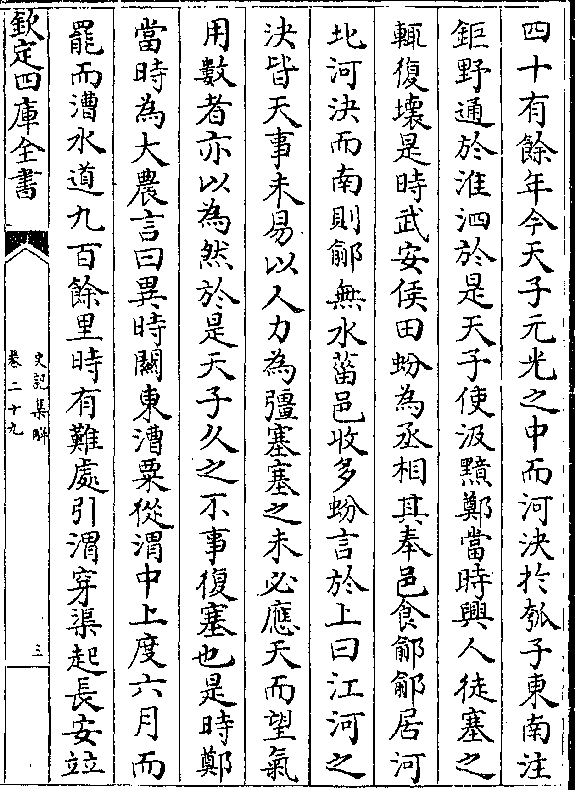 四十有餘年今天子元光之中而河決於瓠子東南注
鉅野通於淮泗於是天子使汲黯鄭當時興人徒塞之
輒復壞是時武安侯田蚡為丞相其奉邑食鄃鄃居河
北河決而南則鄃無水菑邑收多蚡言於上曰江河之
決皆天事未易以人力為彊塞塞之未必應天而望氣
用數者亦以為然於是天子久之不事復塞也是時鄭
當時為大農言曰異時關東漕粟從渭中上度六月而
罷而漕水道九百餘里時有難處引渭穿渠起長安竝
欽定四庫全書
史記集解
卷二十九
三